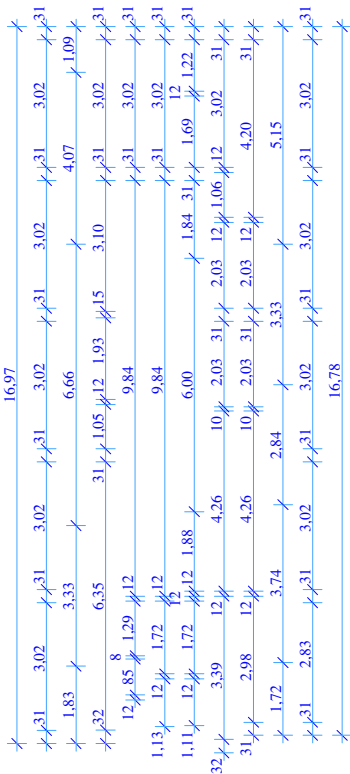 16,97
,31 3,02 ,31 3,02 ,31 3,02 ,31 3,02 ,31 3,02 ,31
1,83 3,33 6,66 4,07 1,09
,32 6,35 31 1,05 ,12 1,93 ,15 3,10 ,31 3,02 ,31
12 ,85 8 1,29 ,12 9,84 ,31 3,02 ,31
1,13 12 1,72 ,12 9,84 ,31 3,02 ,31
1,11 12 1,72 12 ,12 1,88 6,00 1,84 31 1,69 12 1,22 ,31
32 3,39 12 4,26 10 2,03 31 2,03 12 1,06 ,12 3,02 31
31 2,98 12 4,26 10 2,03 31 2,03 12 4,20 31
1,72 3,74 2,84 3,33 5,15
,31 2,83 ,31 3,02 ,31 3,02 ,31 3,02 ,31 3,02 ,31
16,78